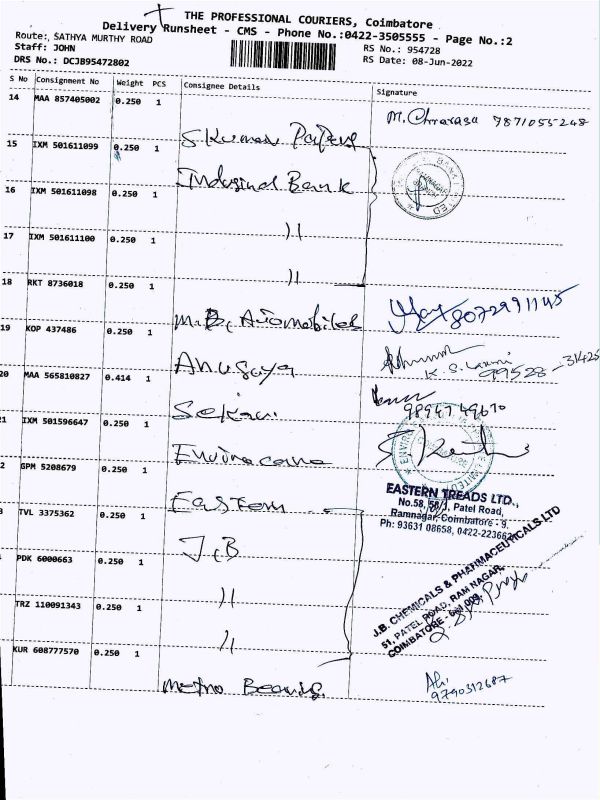 THE PROFESSIONAL COURIERS, Coimbatore
Delivery Runsheet - CMS - Phone No.:0422-3505555 - Page No.:2
Route: SATHYA MURTHY ROAD RS No.: 954728
Staff: JOHN RS Date: 08-Jun-2022
DRS No.: DCJB95472802
S No Consignment No Weight PCS Consignee Details Signature
14 MAA 857405002 0.250 1 9871055248
15 IXM 501611099 0.250 1
16 IXM 501611098 0.250 1 Indusind Bank
17 IXM 501611100 0.250 1 )1
18 RKT 8736018 0.250 1 )1
19 KOP 437486 0.250 1 M.B. Automobiles 8072991145
20 MAA 565810827 0.414 1 Anusaya K.S. Laxmi 99528-31425
1 IXM 501596647 0.250 1 Sekar 9894749670
2 GPM 5208679 0.250 1
TVL 3375362 0.250 1 Eastern
EASTERN TREADS LTD.,
No.58, 58/1, Patel Road,
Ramnagar, Coimbatore - 9.
Ph: 93631 08658, 0422-223662
PDK 6000663 0.250 1 J.B
TRZ 110091343 0.250 1 )1
J.B. CHEMICALS & PHARMACEUTICALS LTD
51, PATEL ROAD, RAM NAGAR,
COIMBATORE - 641 009.
KUR 608777570 0.250 1 )1
Metro Bearing. 9790312687